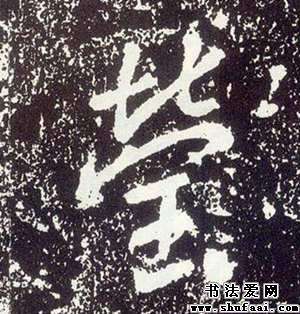 瑩
书法爱网
www.shufaai.com